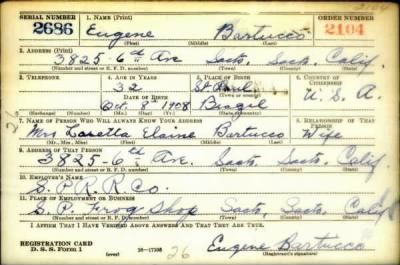 2104
SERIAL NUMBER 1. NAME (Print) ORDER NUMBER
2686 Eugene Bartucco 2104
(First) (Middle) (Last)
2. ADDRESS (Print)
3825-6th Ave Sacto, Sacto, Calif.
(Number and street or R. F. D. number) (Town) (County) (State)
3. TELEPHONE 4. AGE IN YEARS 5. PLACE OF BIRTH 6. COUNTRY OF CITIZENSHIP
32 St. Paul
DATE OF BIRTH
Oct. 8th 1908 Brazil U. S. A.
(Exchange) (Number) (Mo.) (Day) (Yr.) (State or country)
7. NAME OF PERSON WHO WILL ALWAYS KNOW YOUR ADDRESS 8. RELATIONSHIP OF THAT PERSON
Mrs Elaine Bartucco Wife
(Mr., Mrs., Miss) (First) (Middle) (Last)
9. ADDRESS OF THAT PERSON
3825-6th Ave. Sacto, Sacto, Calif
(Number and street or R. F. D. number) (Town) (County) (State)
10. EMPLOYER'S NAME
S. P. R. R. Co.
11. PLACE OF EMPLOYMENT OR BUSINESS
S. P. Frog Shop Sacto, Sacto, Calif
(Number and street or R. F. D. number) (Town) (County) (State)
I AFFIRM THAT I HAVE VERIFIED ABOVE ANSWERS AND THAT THEY ARE TRUE.
REGISTRATION CARD
D. S. S. Form 1 16-17105 26 Eugene Bartucco
(Registrant's signature)
26